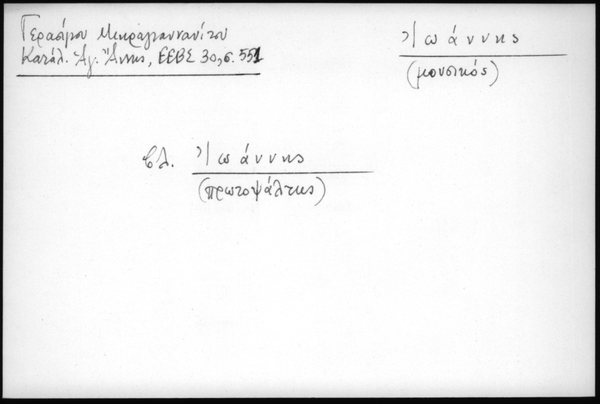 Γερασίμου Μικραγιαννανίτου
Κατάλ. Ἁγ. Ἄννης, ΕΕΒΣ 30, σ. 551
Ἰωάννης
(μουσικός)
βλ. Ἰωάννης
(πρωτοψάλτης)